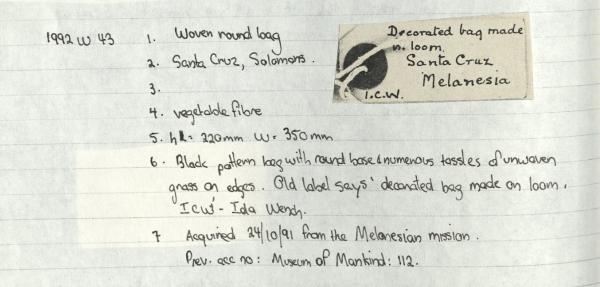 1992 W 43 1. Woven round bag
2. Santa Cruz, Solomons.
3.
4. vegetable fibre
5. h = 220mm w = 350mm
6. Black pattern bag with round base & numerous tassles of unwoven
grass on edges. Old label says 'decorated bag made on loom.
ICW' - Ida Wench.
7 Acquired 24/10/91 from the Melanesian mission.
Prev. acc no: Museum of Mankind: 112.
Decorated bag made
n. loom.
Santa Cruz
Melanesia
I.C.W.